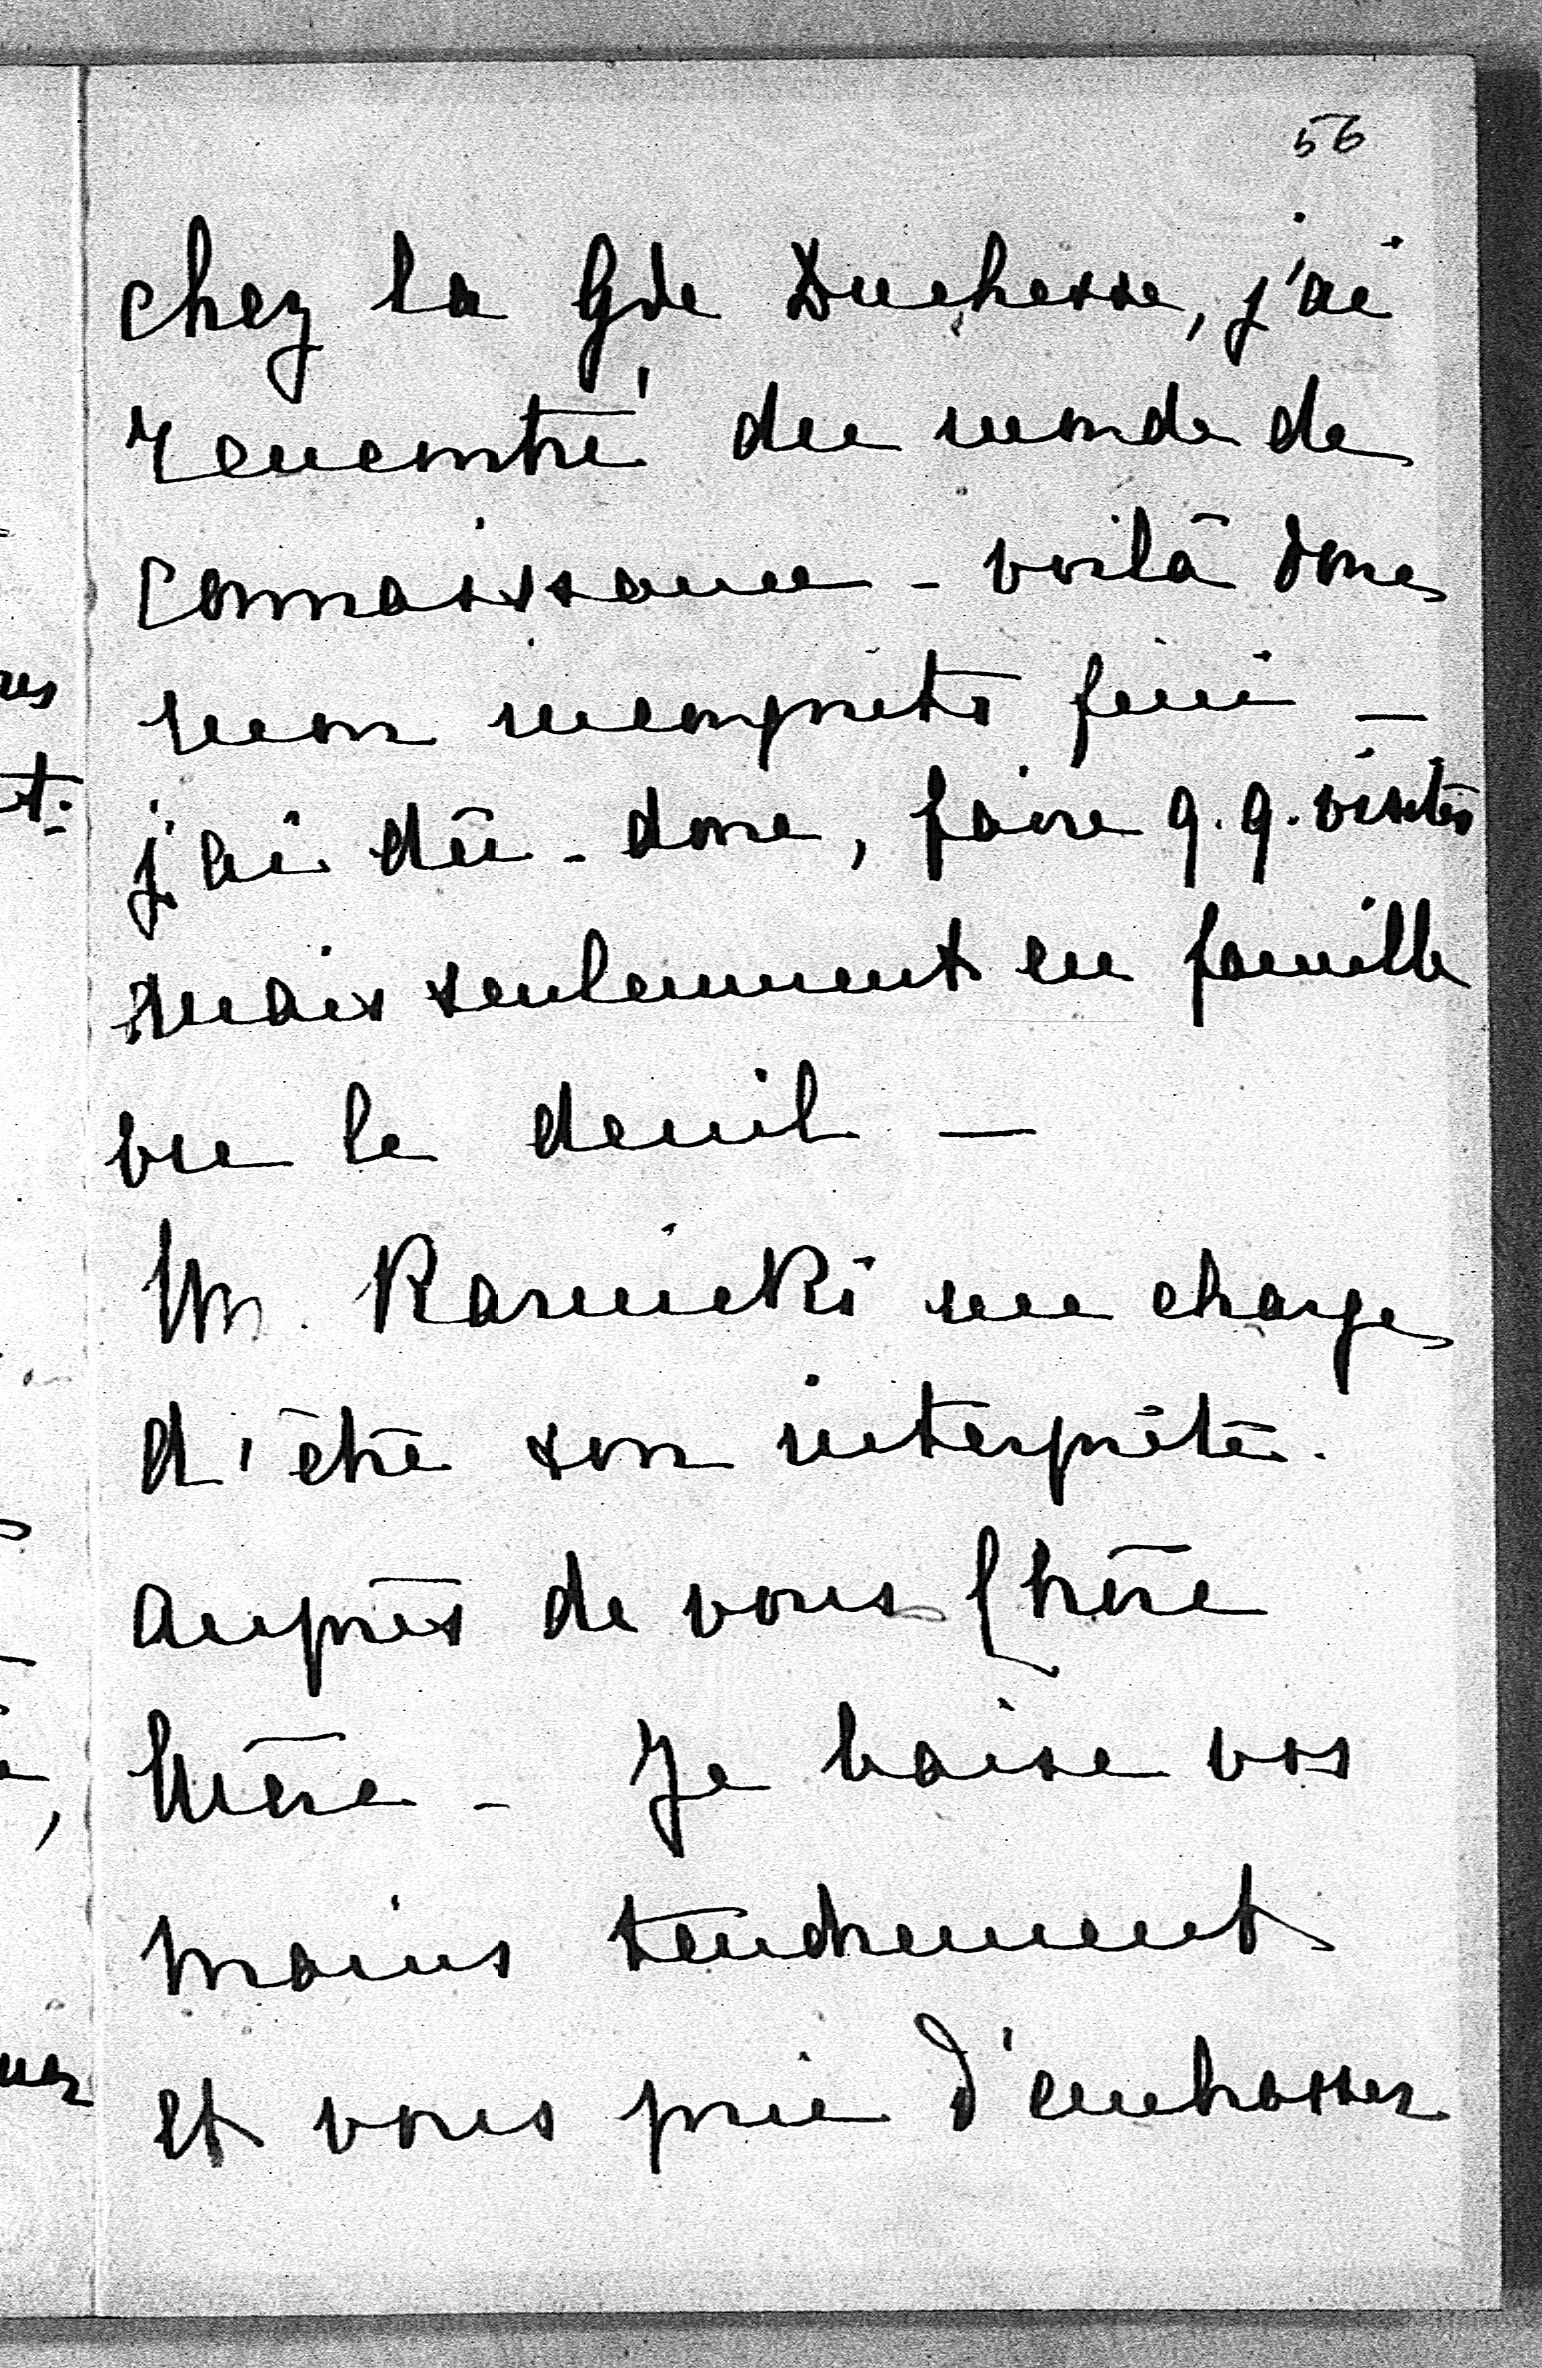 56
chez la Gde Duchesse, j'ai
rencontré du monde de
connaissance - voilà donc
mon incognito fini —
j'ai dû - donc, faire q.q. visites
mais seulement en famille
vu le deuil —
M. Karnicki me charge
d'être son interprète.
auprès de vous Chère
Mère - Je baise vos
mains tendrement
et vous prie d'embrasser